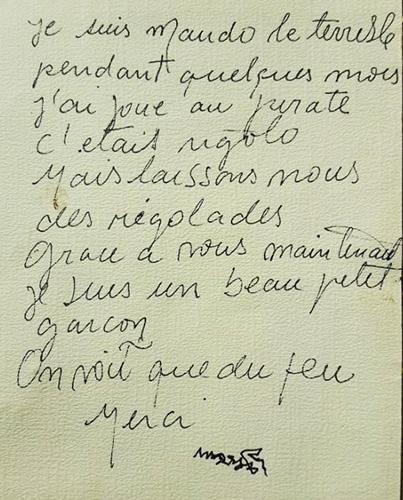 Je suis Mando le terrible
pendant quelques mois
j'ai joue au pirate
c'etait rigolo
Mais laissons nous
des rigolades
Grace a vous maintenant
je suis un beau petit
garcon
On voit que du feu
Merci